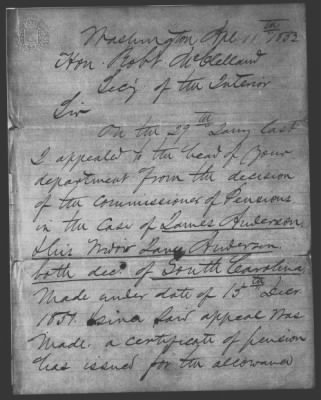 Washington Apl 11th 1853
Hon. Robt McClelland
Secy of the Interior
Sir
On the 29th Jany last
I appealed to the head of your
department from the decision
of the commissioner of Pensions
in the case of James Anderson
& his Widow Jane Anderson
both decd of South Carolina
made under date of 15th Decr
1851. Since said appeal was
made, a certificate of pension
has issued for the allowance